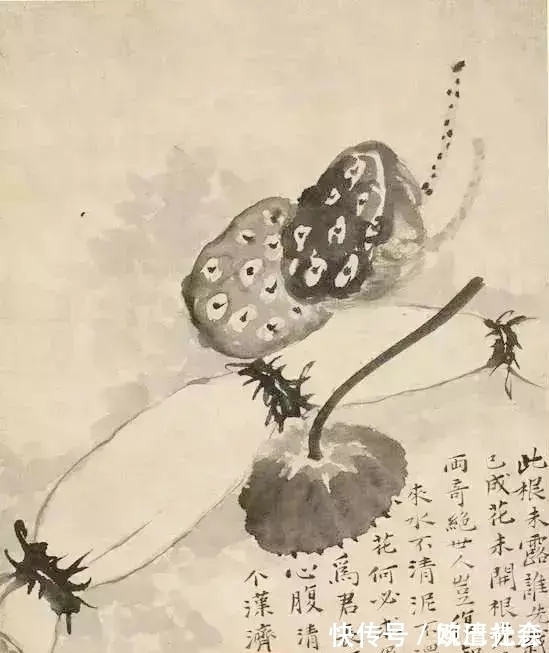 此根未露誰先
已成花未開根
兩絕世人豈復
來水不清泥不
花何必
爲君
心腹清
个藻濟
快传号 /